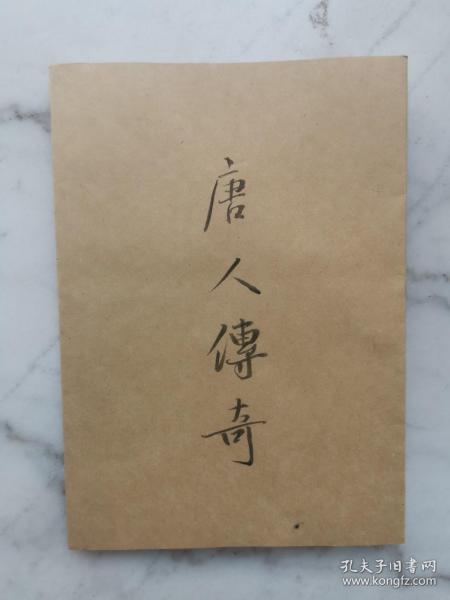 唐人傳奇
孔夫子旧书网
www.kongfz.com